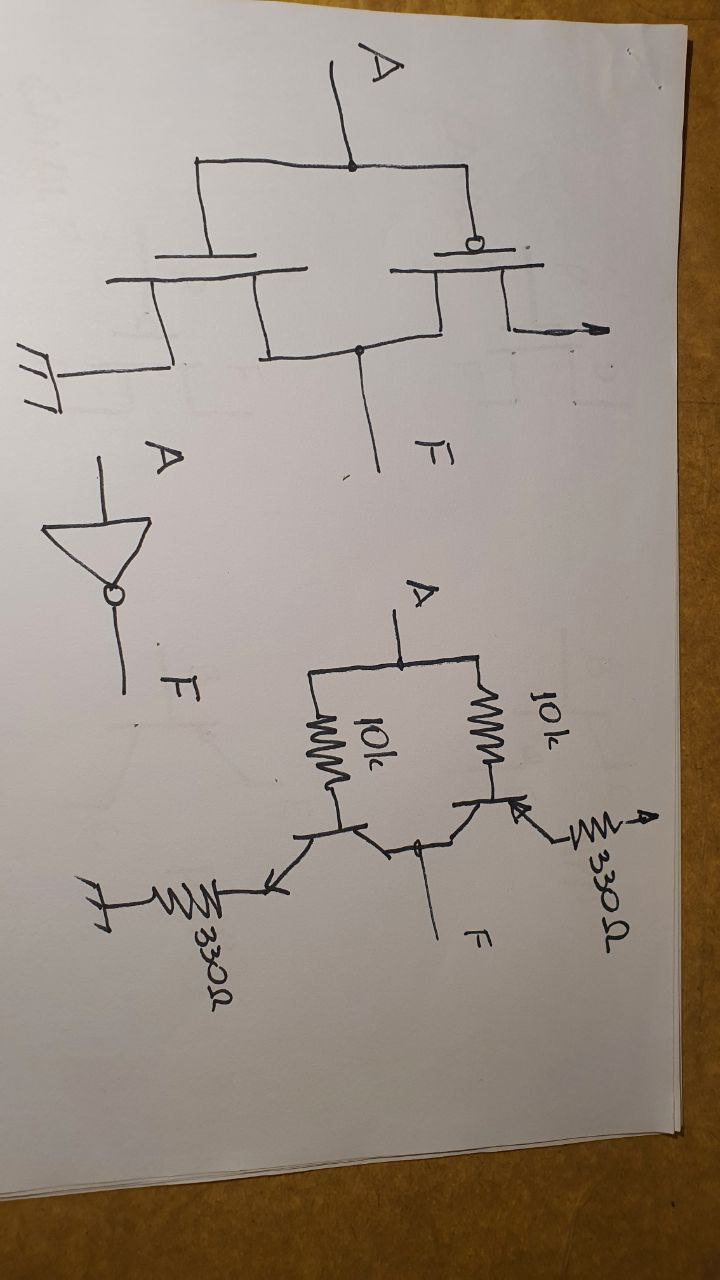 A
F
A
F
A
10k
10k
330Ω
330Ω
F